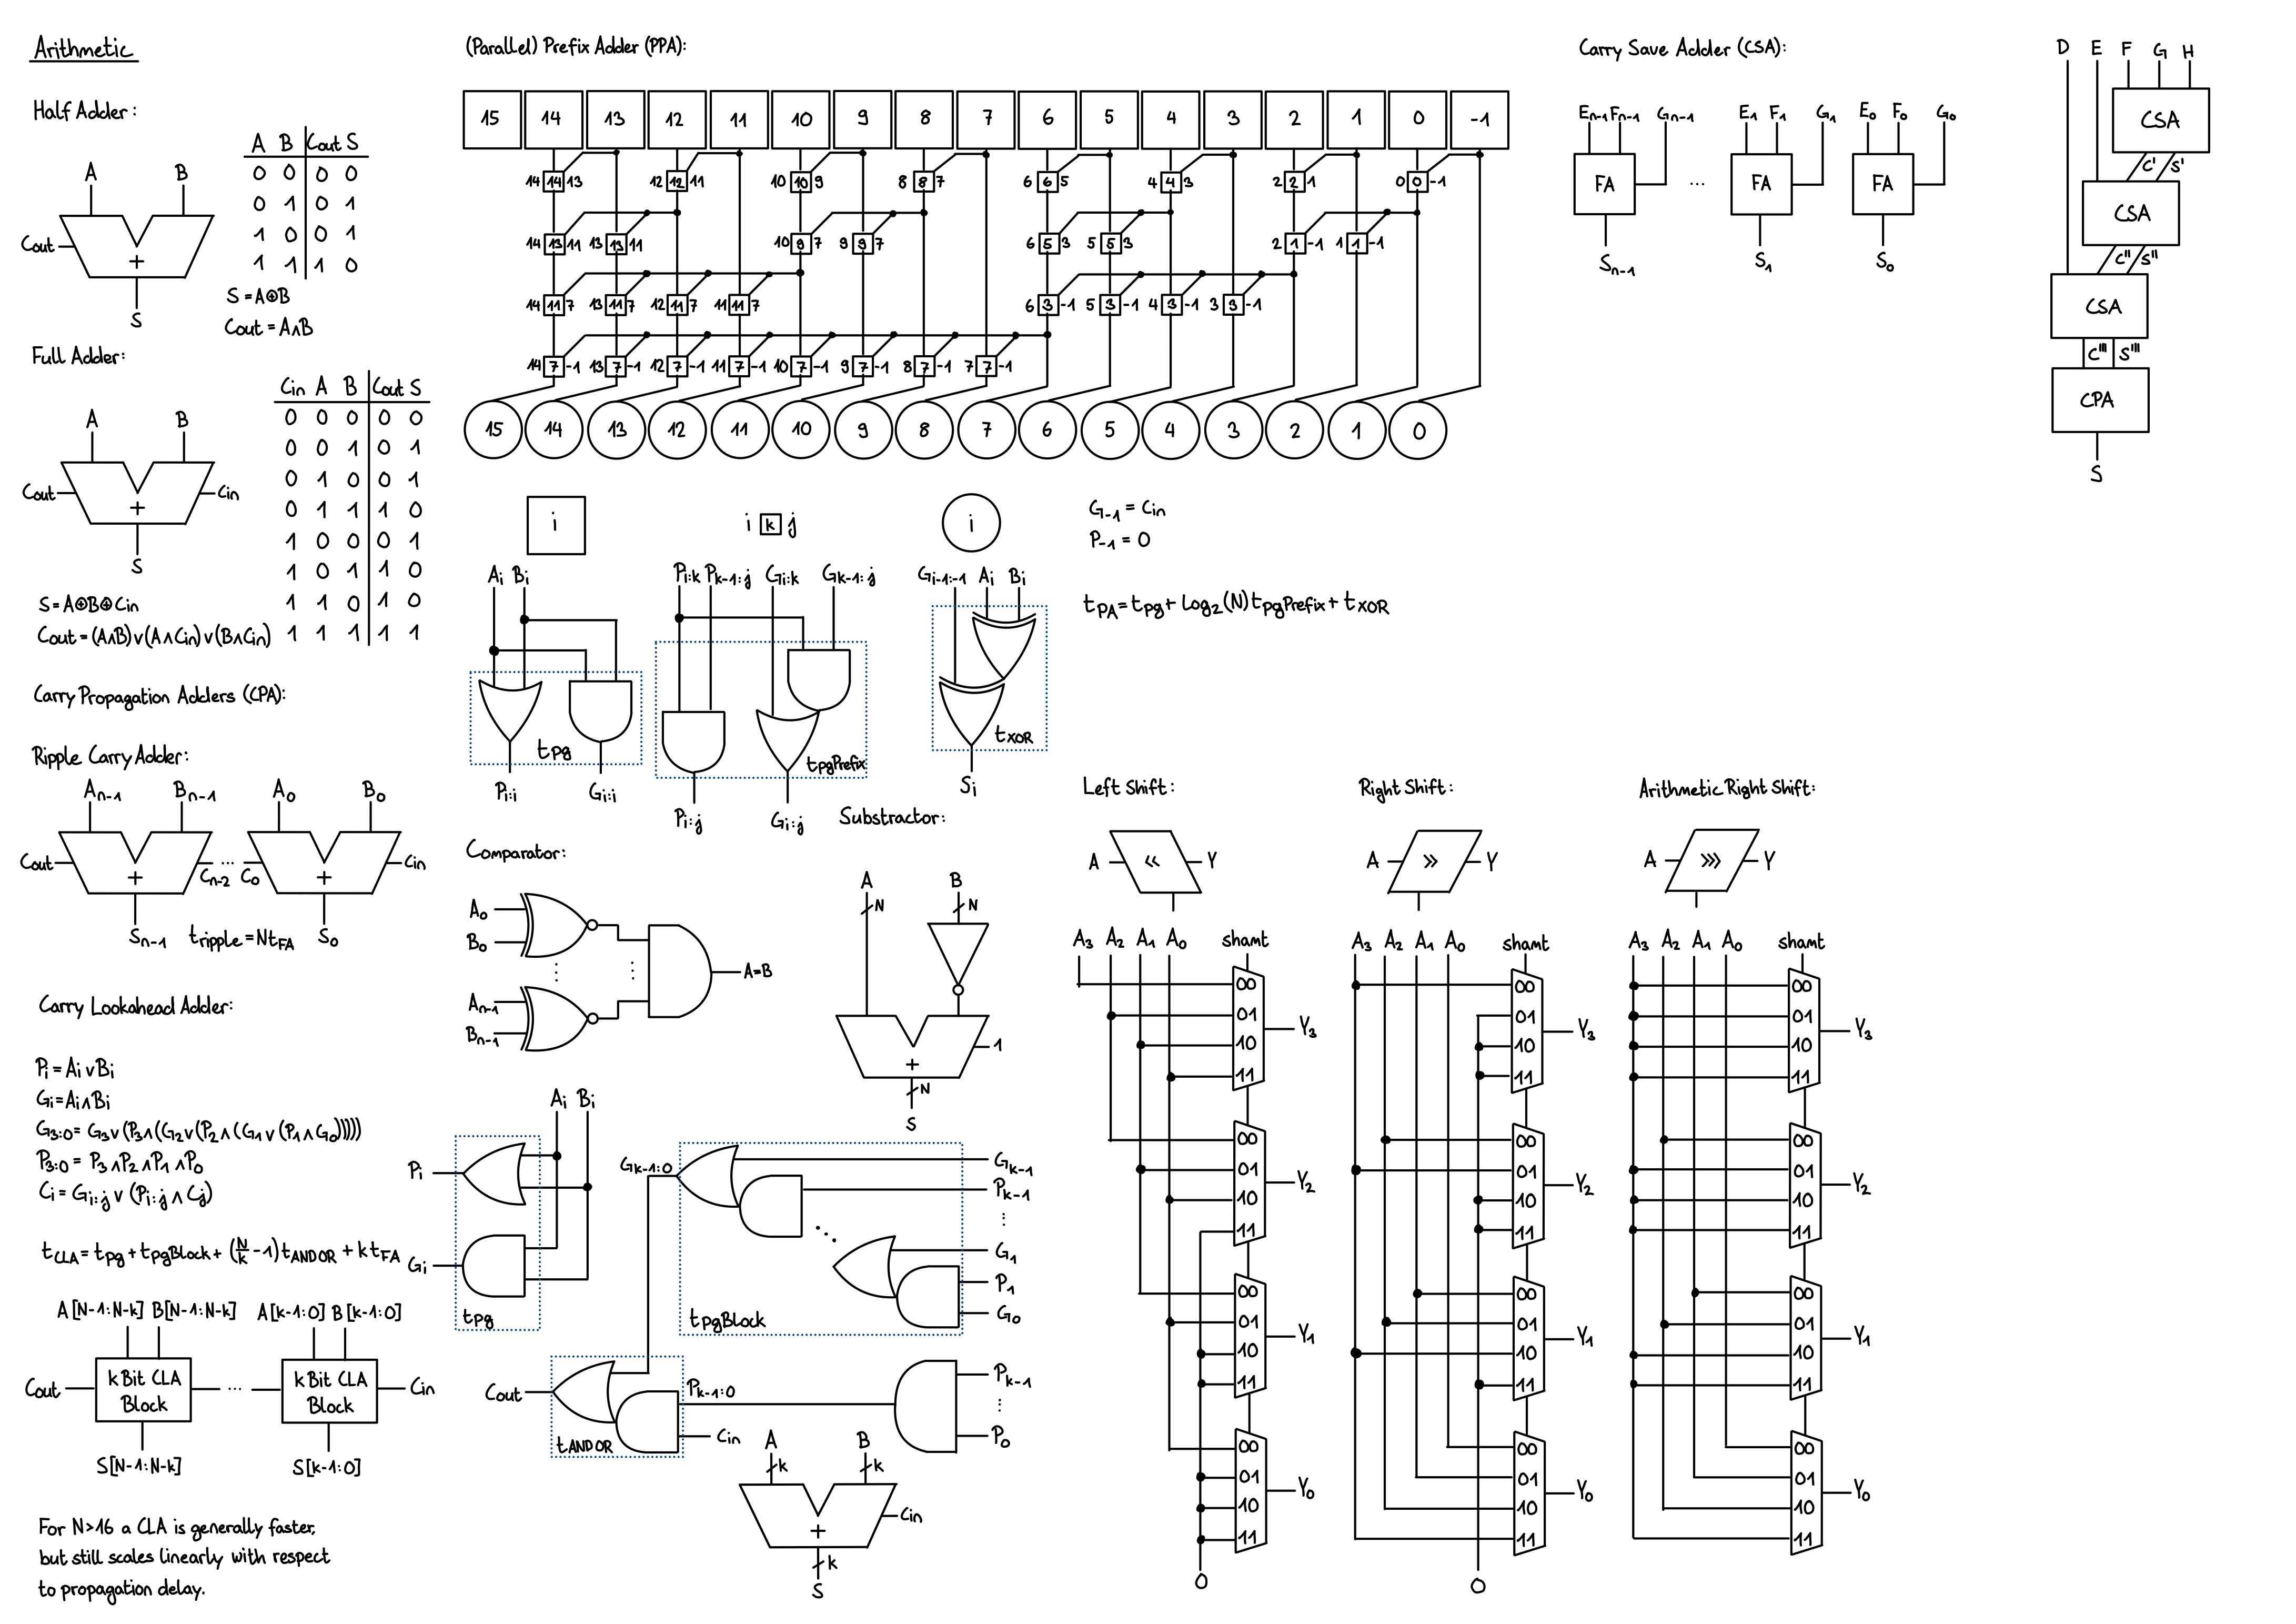 Arithmetic
Half Adder:
A B Cout S
0 0 0 0
0 1 0 1
1 0 0 1
1 1 1 0
A B
Cout
+
S
S = A⊕B
Cout = A∧B
Full Adder:
Cin A B Cout S
0 0 0 0 0
0 0 1 0 1
0 1 0 0 1
0 1 1 1 0
1 0 0 0 1
1 0 1 1 0
1 1 0 1 0
1 1 1 1 1
A B
Cout Cin
+
S
S = A⊕B⊕Cin
Cout = (A∧B)∨(A∧Cin)∨(B∧Cin)
Carry Propagation Adders (CPA):
Ripple Carry Adder:
An-1 Bn-1 A0 B0
Cout Cn-2 ... C0 Cin
+ +
Sn-1 S0
tripple = NtFA
Carry Lookahead Adder:
Pi = Ai∨Bi
Gi = Ai∧Bi
G3:0 = G3∨(P3∧(G2∨(P2∧(G1∨(P1∧G0)))))
P3:0 = P3∧P2∧P1∧P0
Ci = Gi:j∨(Pi:j∧Cj)
tCLA = tpg + tpgBlock + (N/k - 1) tANDOR + k tFA
A[N-1:N-k] B[N-1:N-k] A[k-1:0] B[k-1:0]
Cout k Bit CLA Block ... k Bit CLA Block Cin
S[N-1:N-k] S[k-1:0]
For N>16 a CLA is generally faster,
but still scales linearly with respect
to propagation delay.
(Parallel) Prefix Adder (PPA):
15 14 13 12 11 10 9 8 7 6 5 4 3 2 1 0 -1
14 14 13 12 12 11 10 10 9 8 8 7 6 6 5 4 4 3 2 2 1 0 0 -1
14 13 11 13 13 11 10 9 7 9 9 7 6 5 3 5 5 3 2 1 -1 1 1 -1
14 11 7 13 11 7 12 11 7 11 11 7 6 3 -1 5 3 -1 4 3 -1 3 3 -1
14 7 -1 13 7 -1 12 7 -1 11 7 -1 10 7 -1 9 7 -1 8 7 -1 7 7 -1
15 14 13 12 11 10 9 8 7 6 5 4 3 2 1 0
i
Ai Bi
tpg
Pi:i Gi:i
i k j
Pi:k Pk-1:j Gi:k Gk-1:j
tpgPrefix
Pi:j Gi:j
i
Gi-1:-1 Ai Bi
tXOR
Si
G-1 = Cin
P-1 = 0
tPA = tpg + log2(N) tpgPrefix + tXOR
Comparator:
A0
B0
⋮ ⋮
An-1
Bn-1
A=B
Substractor:
A B
N N
+ 1
N
S
Ai Bi
Pi
Gi
tpg
Gk-1:0
Gk-1
Pk-1
⋮
G1
P1
G0
tpgBlock
Cout
tANDOR
Pk-1:0
Cin
Pk-1
⋮
P0
A B
k k
+ Cin
k
S
Carry Save Adder (CSA):
En-1 Fn-1 Gn-1 E1 F1 G1 E0 F0 G0
FA ... FA FA
Sn-1 S1 S0
D E F G H
CSA
C' S'
CSA
C'' S''
CSA
C''' S'''
CPA
S
Left Shift:
A << Y
A3 A2 A1 A0 shamt
00
01
10
11
Y3
00
01
10
11
Y2
00
01
10
11
Y1
00
01
10
11
Y0
0
Right Shift:
A >> Y
A3 A2 A1 A0 shamt
00
01
10
11
Y3
00
01
10
11
Y2
00
01
10
11
Y1
00
01
10
11
Y0
0
Arithmetic Right Shift:
A >>> Y
A3 A2 A1 A0 shamt
00
01
10
11
Y3
00
01
10
11
Y2
00
01
10
11
Y1
00
01
10
11
Y0